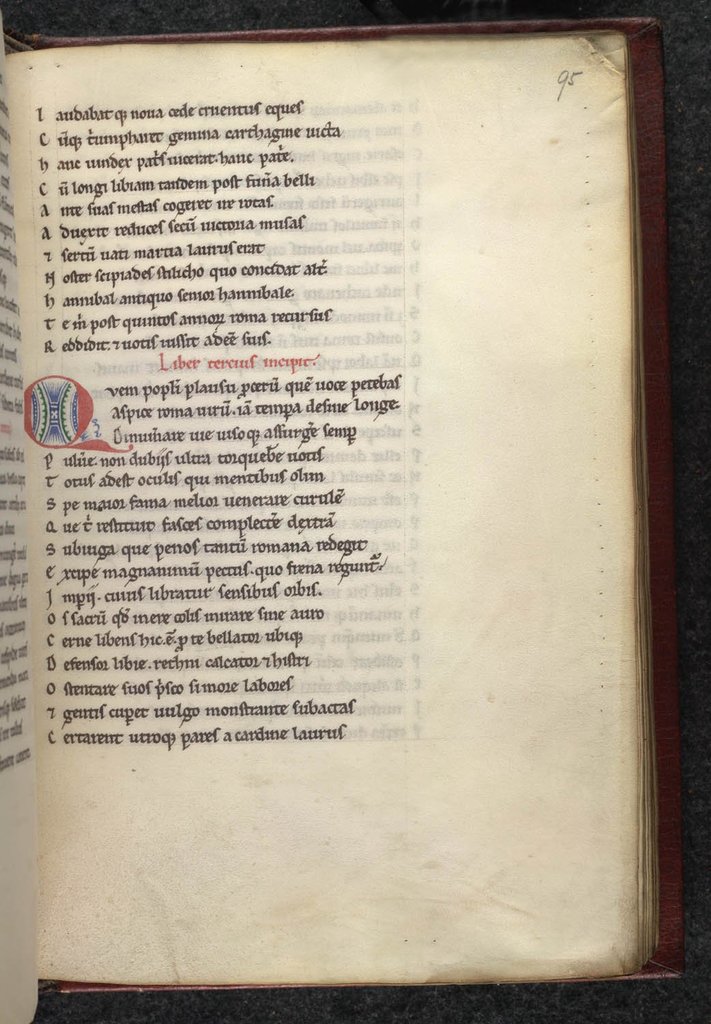 95
l audabat qꝫ noua cede cruentus eques
C ūqꝫ t̄umpharet gemina carthagine uicta
h anc uindex pat̄s uicerat. hanc pat̄e.
C ū longi libiam tandem post fun̄a belli
A nte suas mestas cogeret ire rotas.
A duexit reduces secū uictoria musas
⁊ sertū uati martia laurus erat
N oster scipiades stilicho quo concidat alt̄.
h annibal antiquo senior hannibale.
T e m̄ post quintos annorꝝ roma recursus
R eddidit. ⁊ uotis iussit adeē suis.
Liber tercius incipit.
Qvem popl̄i plausu ꝓcerū quē uoce petebas
Aspice roma uirū. iā tempa desine longe.
Dinum̄are uie uisoqꝫ assurḡe semp̄
P uluе̄. non dubijs ultra torqueb̄e uotis
T otus adest oculis qui mentibus olim
S pe maior fama melior uenerare curulē
Q ue t̄ restituit fasces complect̄e dextrā
S ubiuga que penos tantū romana redegit
E xcipe magnanimū pectus. quo frena regunt̄.
J mp̄ij. cuius libratur sensibus orbis.
O s sacrū qd̄ in ere colis mirare sine auro
C erne libens hic.ē. ꝓ te bellator ubiqꝫ
D efensor libie. rechni calcator ⁊ histri
O stentare suos p̄sco si more labores
⁊ gentis cup̄et uulgo monstrante subactas
C ertarent utroqꝫ pares a cardine laurus